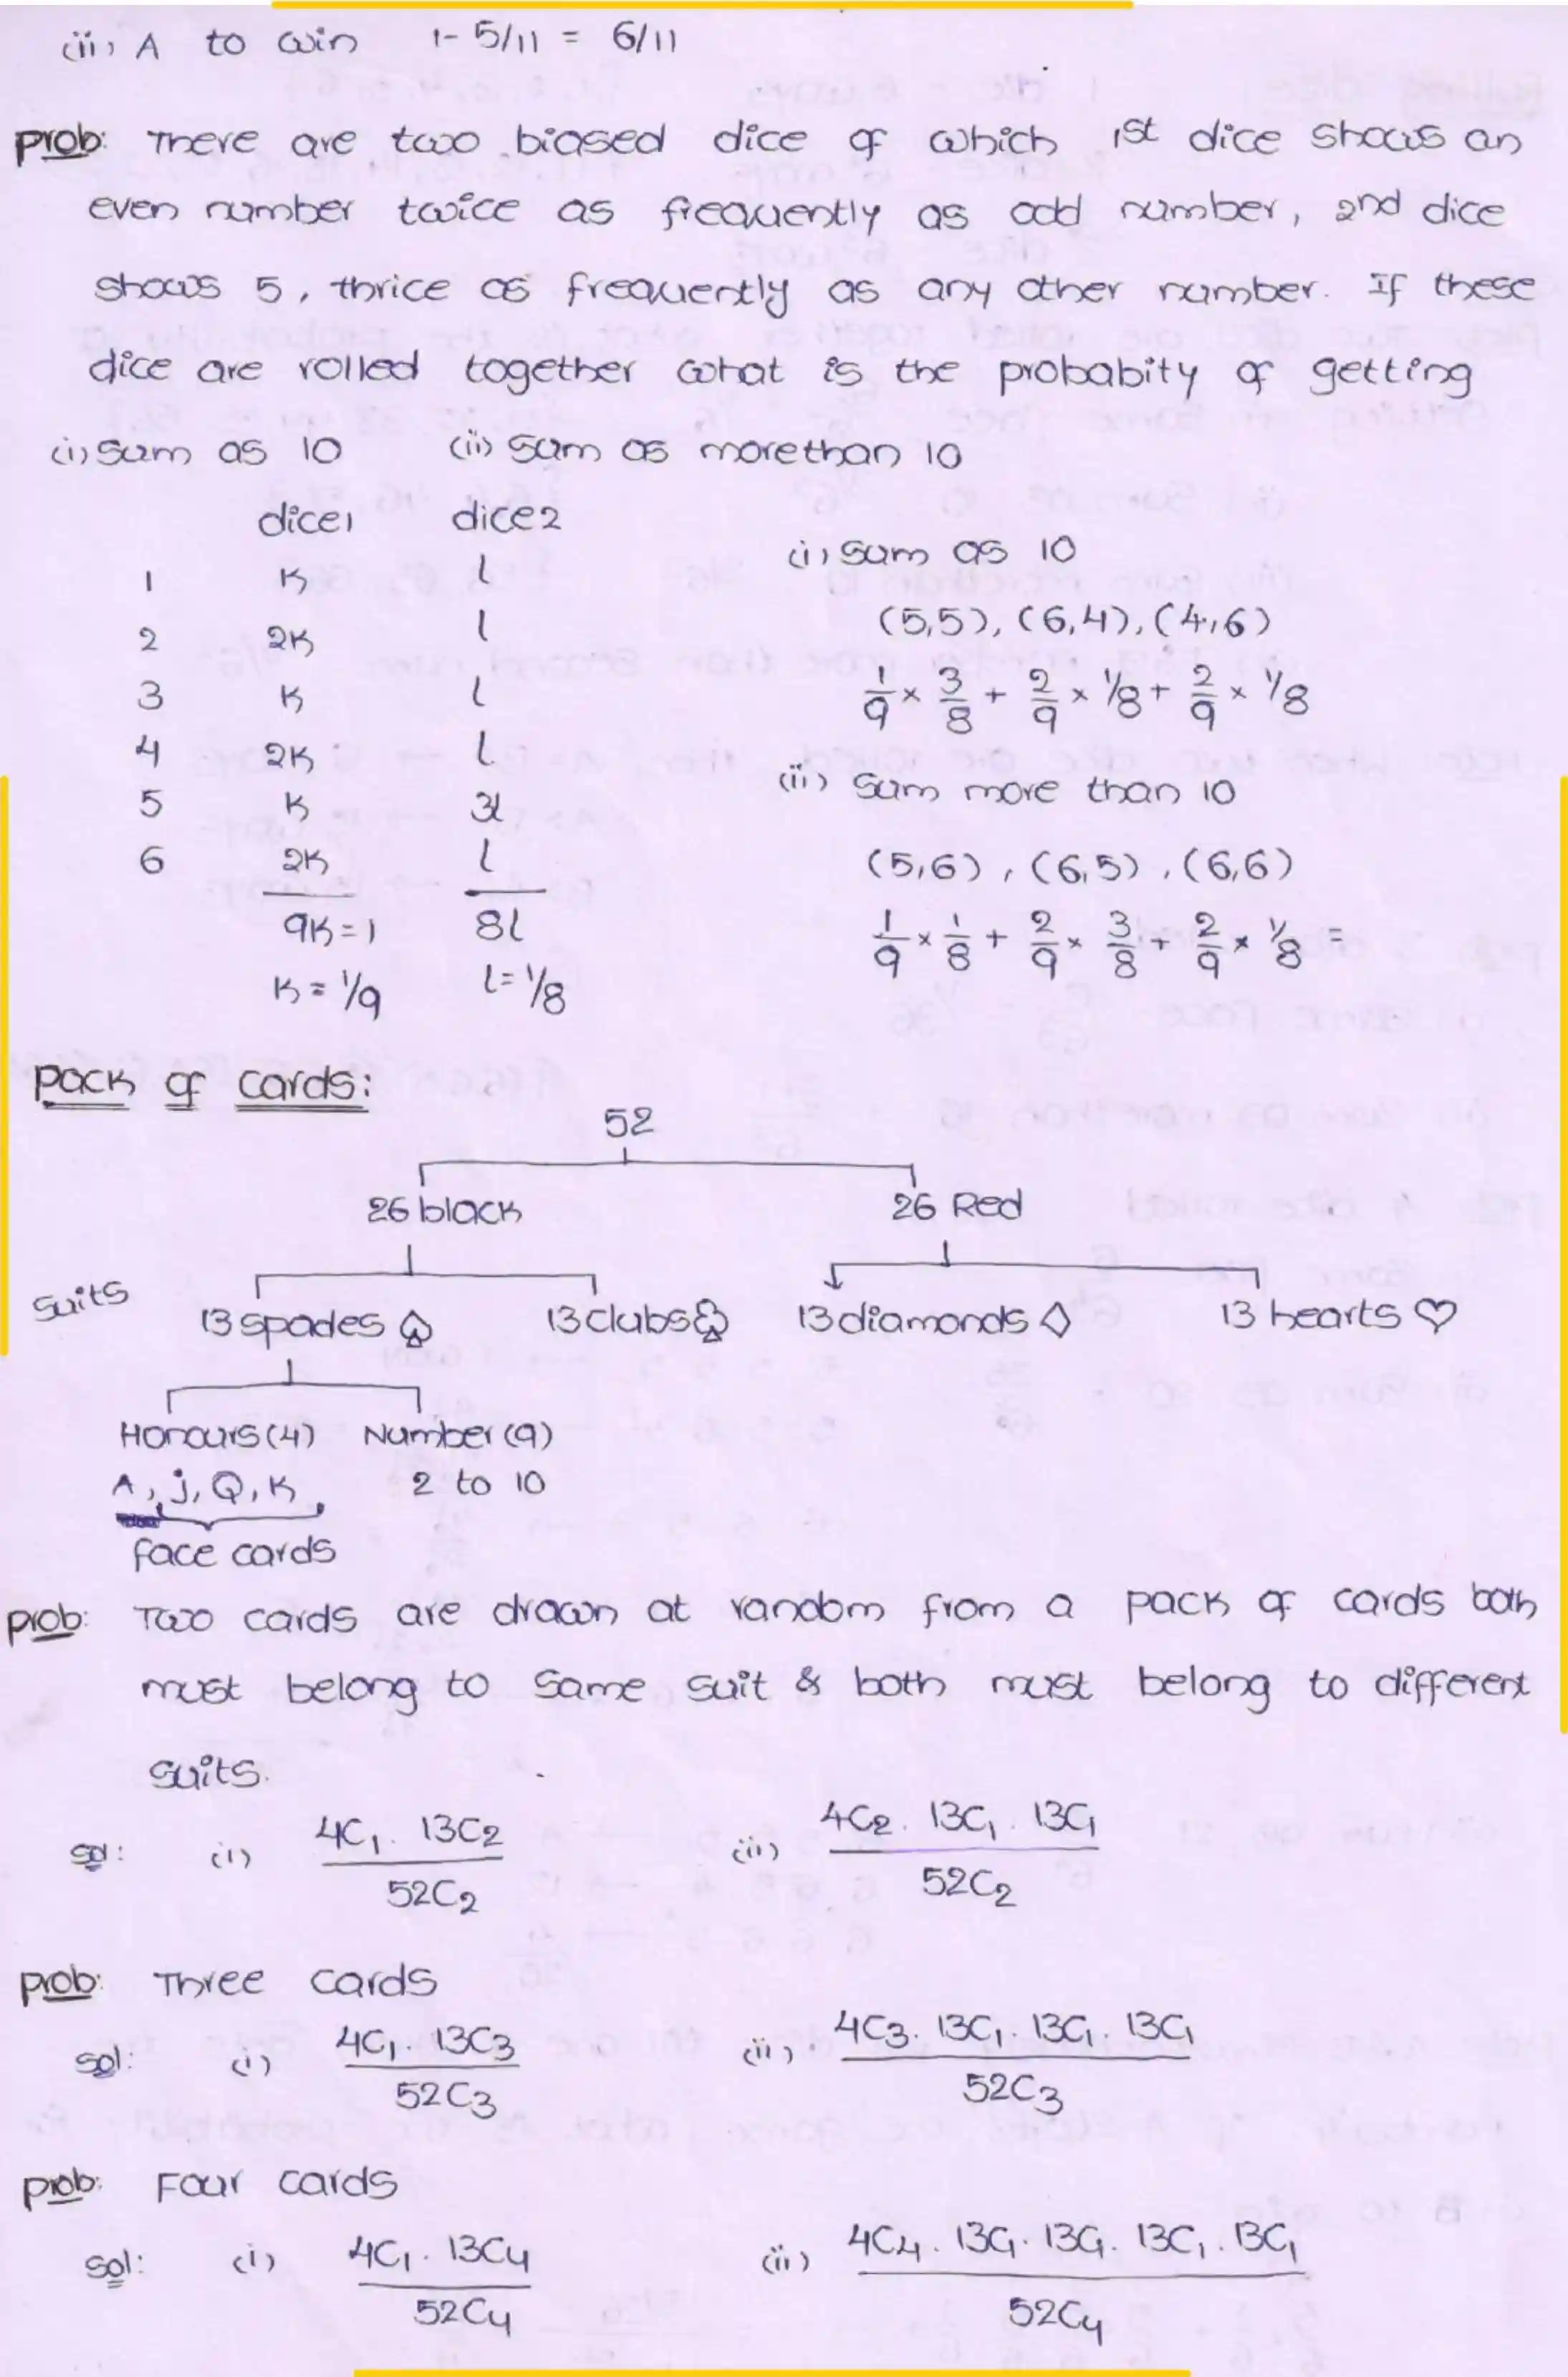 (ii) A to win 1- 5/11 = 6/11
prob: There are two biased dice of which 1st dice shows an
even number twice as frequently as odd number, 2nd dice
shows 5, thrice as frequently as any other number. If these
dice are rolled together what is the probabity of getting
(i) Sum as 10 (ii) Sum as morethan 10
dice1 dice2
1 K l
2 2K l
3 K l
4 2K l
5 K 3l
6 2K l
9K=1 8l
K = 1/9 l= 1/8
(i) Sum as 10
(5,5), (6,4), (4,6)
1/9 × 3/8 + 2/9 × 1/8 + 2/9 × 1/8
(ii) Sum more than 10
(5,6), (6,5), (6,6)
1/9 × 1/8 + 2/9 × 3/8 + 2/9 × 1/8 =
Pack of cards:
52
26 black 26 Red
Suits
13 spades ♤ 13 clubs ♧ 13 diamonds ◇ 13 hearts ♡
Honours (4) Number (9)
A, j, Q, K 2 to 10
face cards
prob: Two cards are drawn at random from a pack of cards both
must belong to same suit & both must belong to different
suits.
sol: (i) 4C₁ . 13C₂ / 52C₂ (ii) 4C₂ . 13C₁ . 13C₁ / 52C₂
prob: Three cards
sol: (i) 4C₁ . 13C₃ / 52C₃ (ii) 4C₃ . 13C₁ . 13C₁ . 13C₁ / 52C₃
prob: Four cards
sol: (i) 4C₁ . 13C₄ / 52C₄ (ii) 4C₄ . 13C₁ . 13C₁ . 13C₁ . 13C₁ / 52C₄